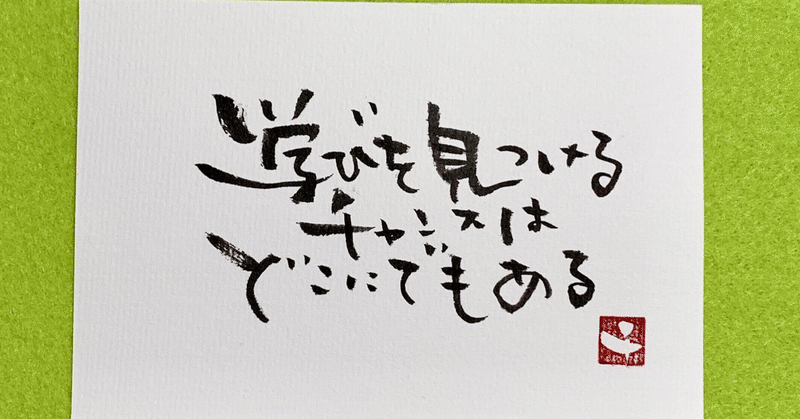 学びを見つける
チャンスは
どこにでもある